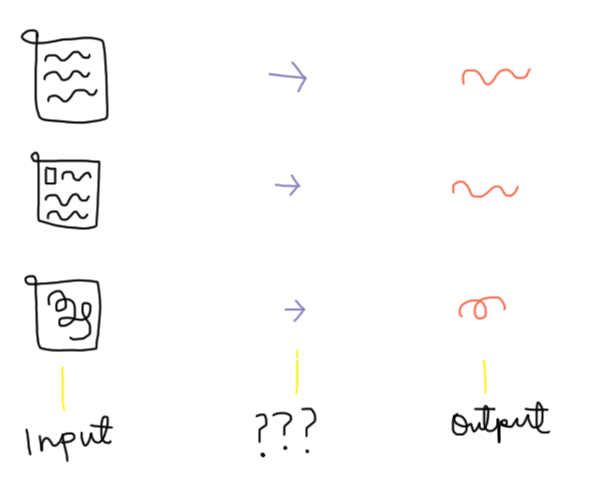 Input
???
Output